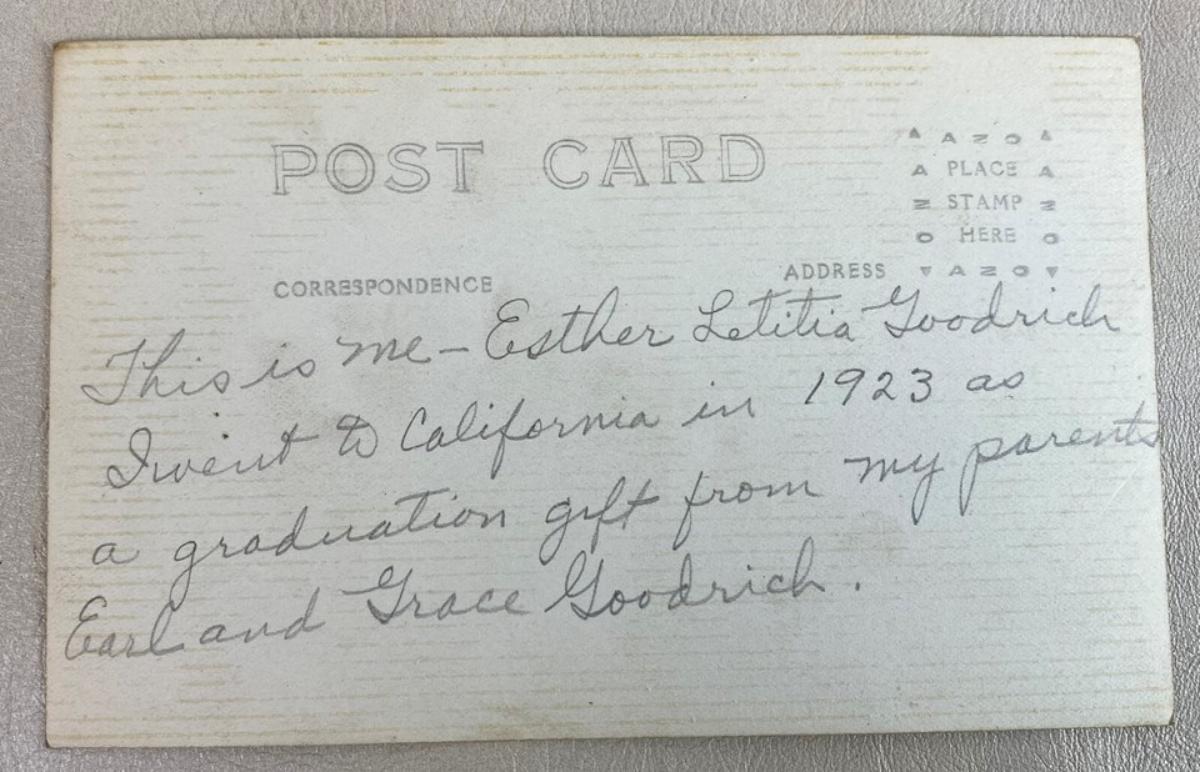 POST CARD
▲ A Z O ▲
A PLACE A
Z STAMP Z
O HERE O
▼ A Z O ▼
CORRESPONDENCE
ADDRESS
This is me – Esther Letitia Goodrich
I went to California in 1923 as
a graduation gift from my parents
Earl and Grace Goodrich.